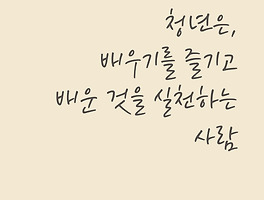 청년은,
배우기를 즐기고
배운 것을 실천하는
사람